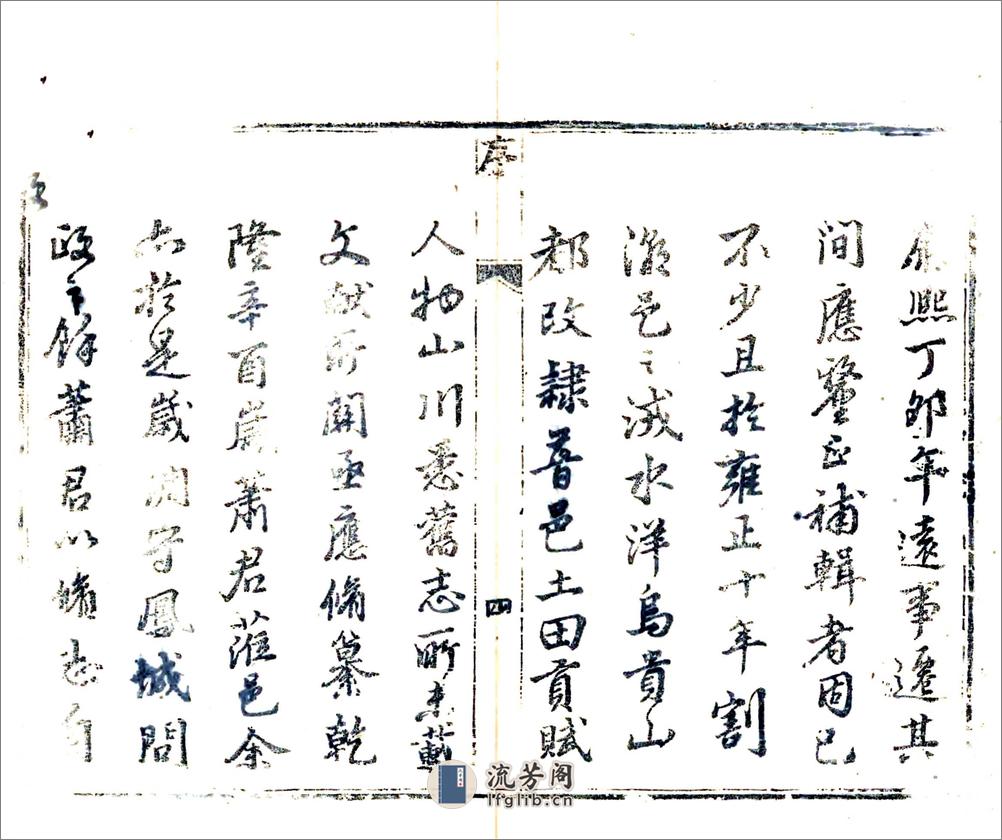 康熙丁卯年遠事遷其
間應鑒正補輯者固已
不少且於雍正十年割
潮邑之水洋烏貴山
都改隸普邑土田貢賦
序
四
人物山川悉舊志所未載
文獻所關亟應脩纂乾
隆辛酉歲蕭君蒞邑余
亦於是歲調守鳳城問
政之餘蕭君以脩志
流芳阁
lfglib.cn